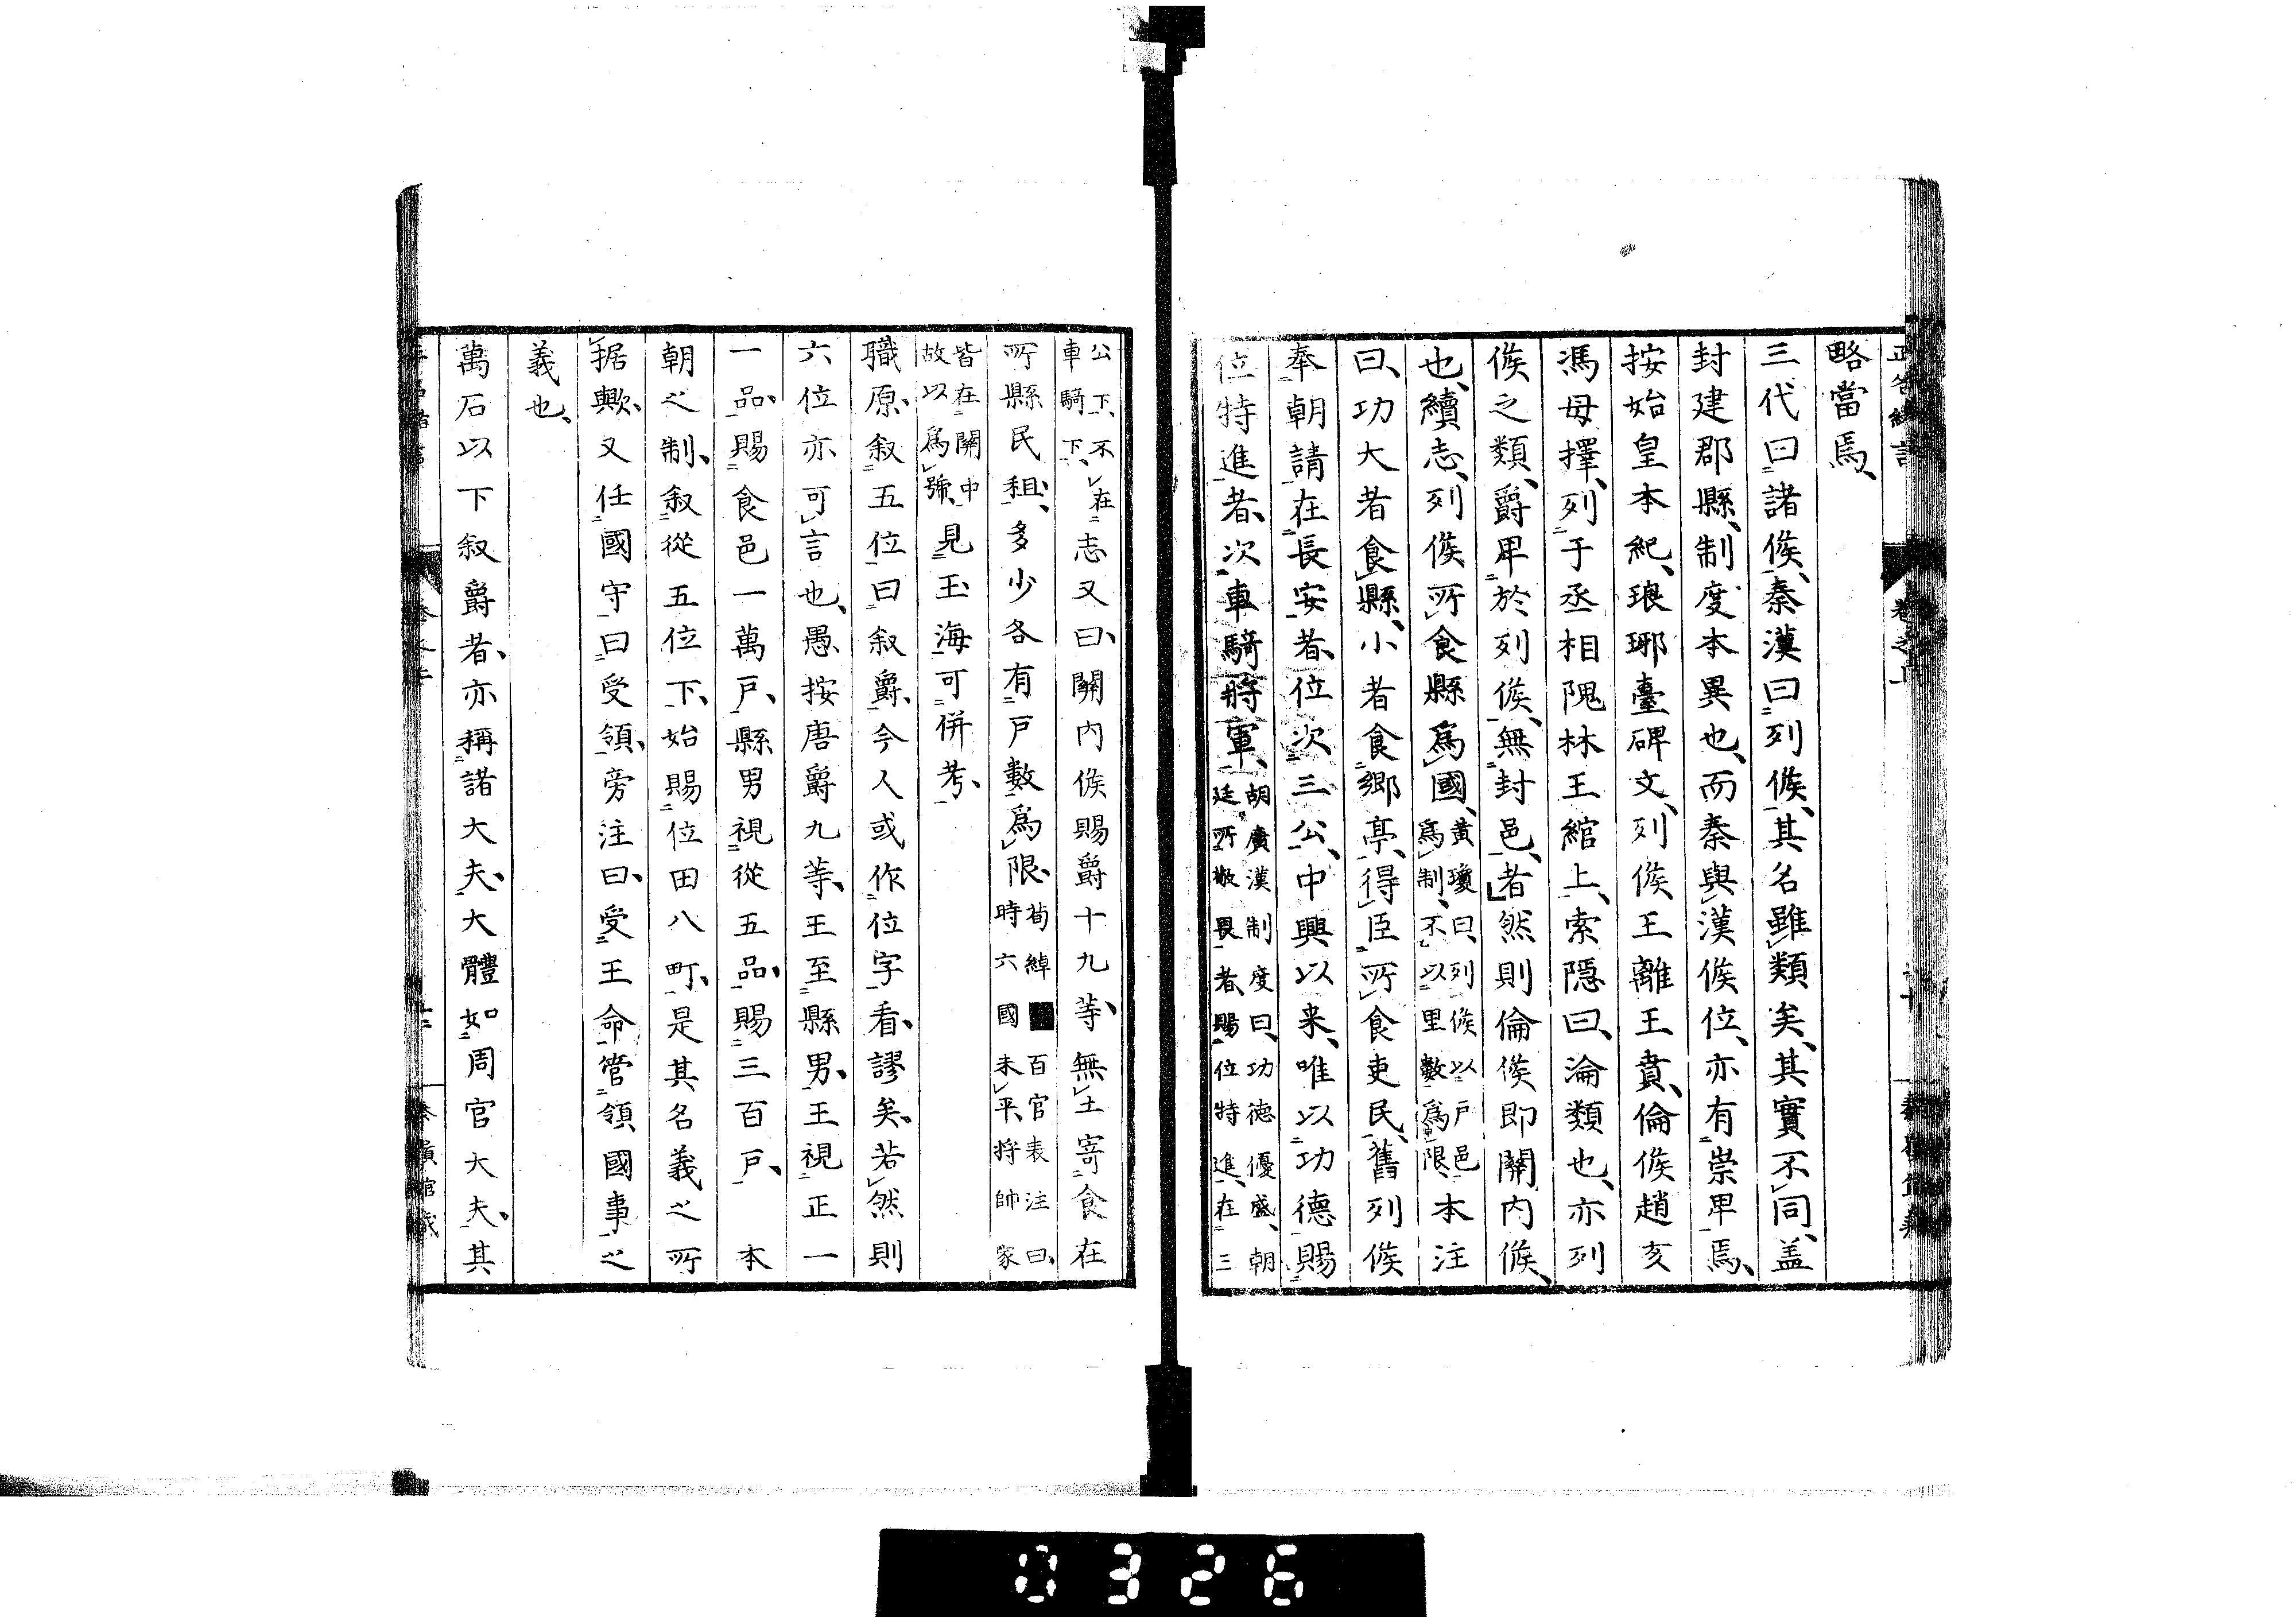 略當焉、
三代曰諸侯、秦漢曰列侯、其名雖類矣、其實不同、盖
封建郡縣、制度本異也、而秦與漢侯位、亦有崇卑焉、
按始皇本紀、琅琊臺碑文、列侯王離王賁、倫侯趙亥
馮毋擇、列于丞相隗林王綰上、索隱曰、淪類也、亦列
侯之類、爵卑於列侯、無封邑、者然則倫侯即關内侯、
也、續志、列侯所食縣爲國、黃瓊曰、列侯以戶邑爲制、不以里數爲限、本注
曰、功大者食縣、小者食鄉亭、得臣所食吏民、舊列侯
奉朝請在長安者、位次三公、中興以来、唯以功德賜
位特進者、次車騎將軍、胡廣漢制度曰、功德優盛、朝廷所敬畏者、賜位特進、在三
公下、不在車騎下、志又曰、關内侯賜爵十九等、無土寄食在
所縣民租、多少各有戶數爲限、荀綽百官表注曰、時六國未平、將帥家
皆在關中故以爲號、見玉海可併考、
職原、叙五位曰叙爵、今人或作位字看、謬矣、若然則
六位亦可言也、愚按唐爵九等、王至縣男、王視正一
一品、賜食邑一萬戶、縣男視從五品、賜三百戶、本
朝之制、叙從五位下、始賜位田八町、是其名義之所
据歟、又任國守曰受領、旁注曰、受王命管領國事之
義也、
萬石以下叙爵者、亦稱諸大夫、大體如周官大夫、其
0326